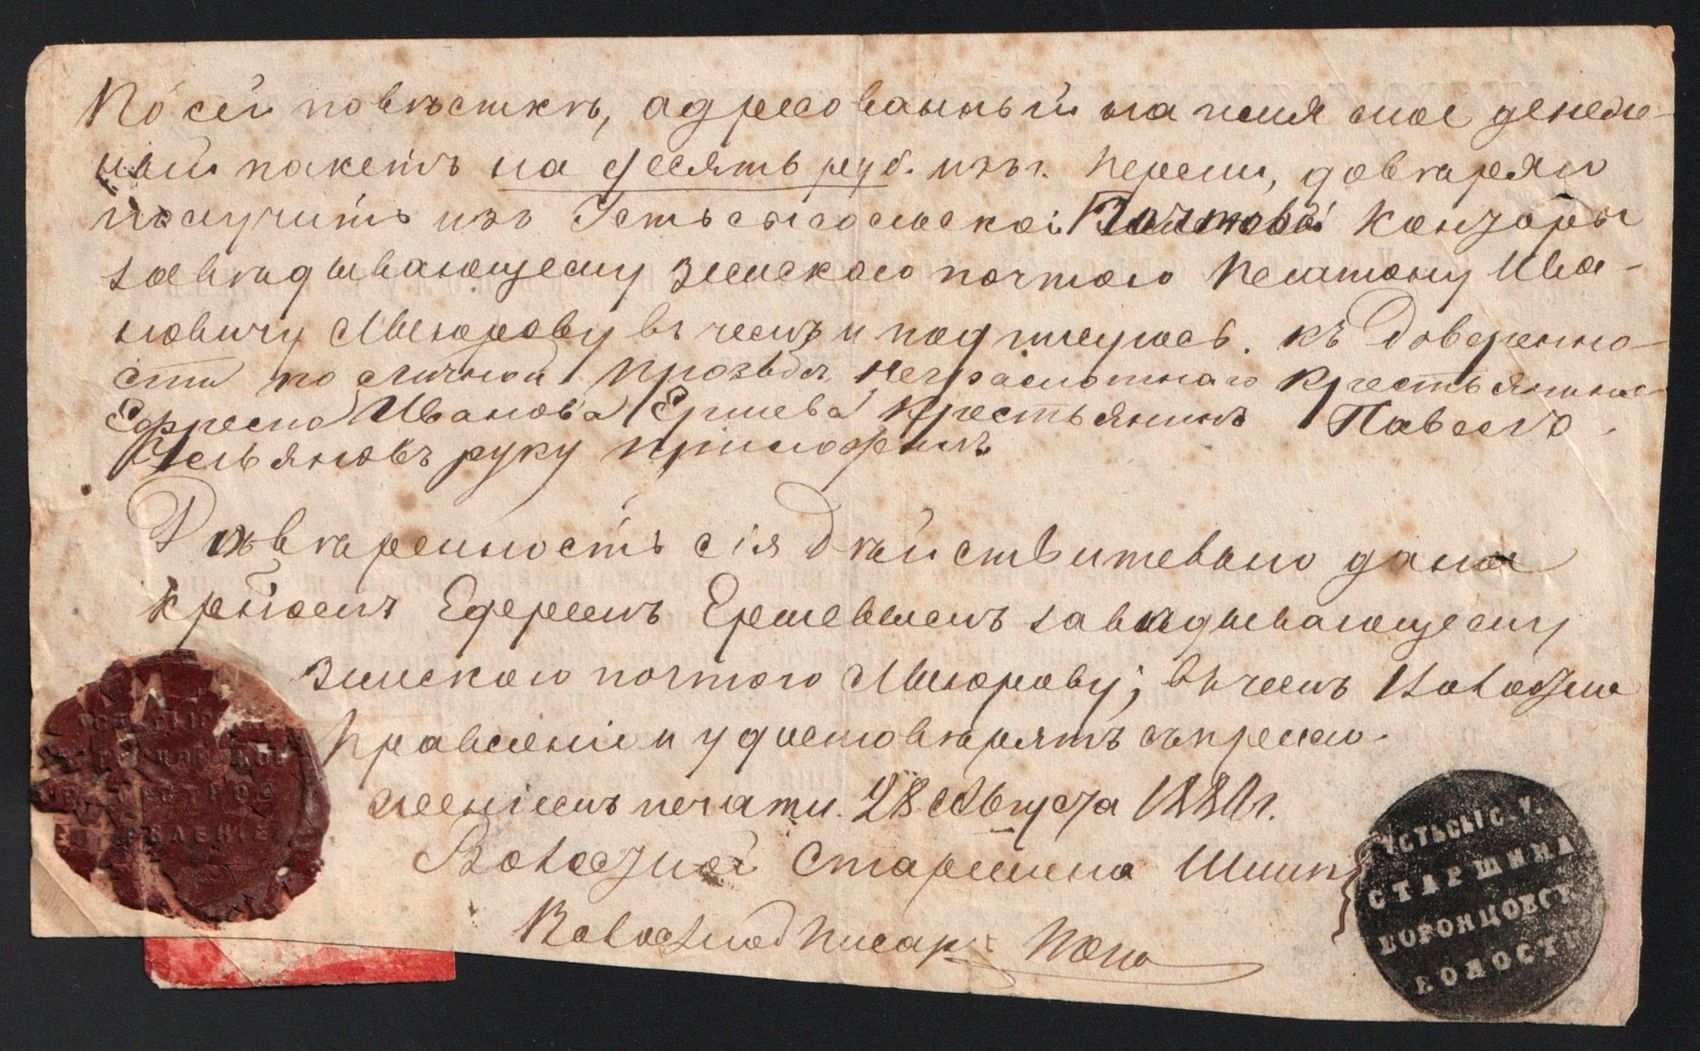 По сей повѣсткѣ, адресованный на имя мое денеж-
ный пакетъ на десять руб. изъ г. Перми, довѣряю
получить изъ Устьсысольской Почтовой Конторы
завѣдывающему земскою почтою Платону Ива-
новичу Мигорову въ чемъ и подписуюсь. къ доверенно-
сти по личной прозьбѣ неграмотнаго крестьянина
Ефрема Иванова Ершева крестьянинъ Павелъ
Ульяновъ руку приложилъ
Довѣренность сія дѣйствительно дана
Ефремъ Ершевымъ завѣдывающему
земскою почтою Мигорову; въ чемъ Волостное
Правленіе и удостовѣряетъ съ прило-
женіемъ печати. 28 Августа 1880 г.
Волостной Старшина
Волостной Писарь
УСТЬСЫС. У.
СТАРШИНА
ВОРОНЦОВСК.
ВОЛОСТИ